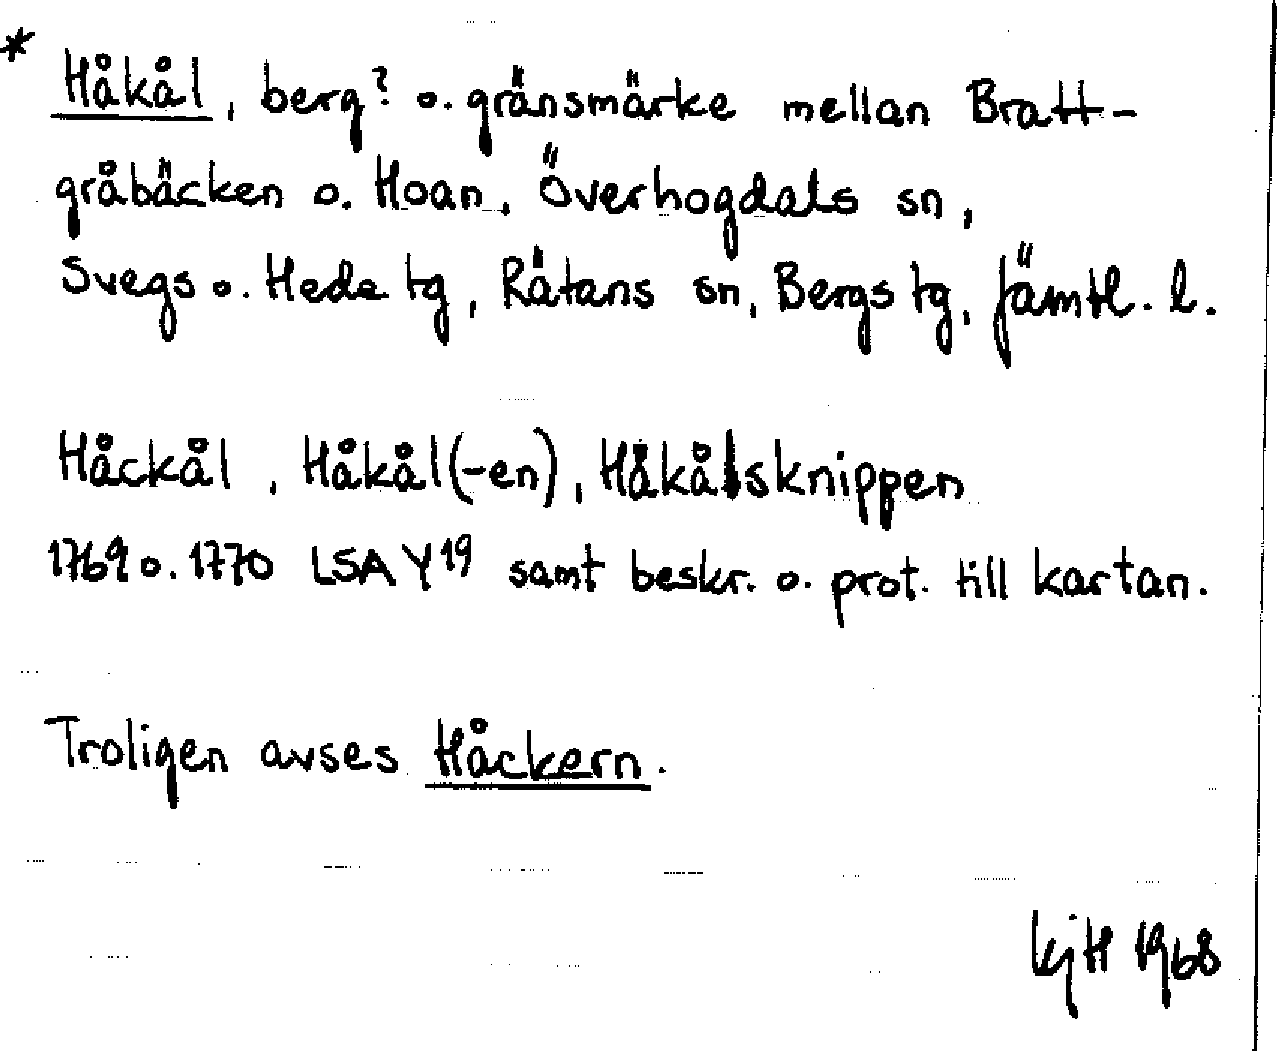 * Håkål, berg? o. gränsmärke mellan Bratt-
gråbäcken o. Hoan, Överhogdals sn,
Svegs o. Hede tg, Rätans sn, Bergs tg, Jämtl. l.
Håckål, Håkål(-en), Håkålsknippen
1769 o. 1770 LSA Y19 samt beskr. o. prot. till kartan.
Troligen avses Håckern.
KjH 1968